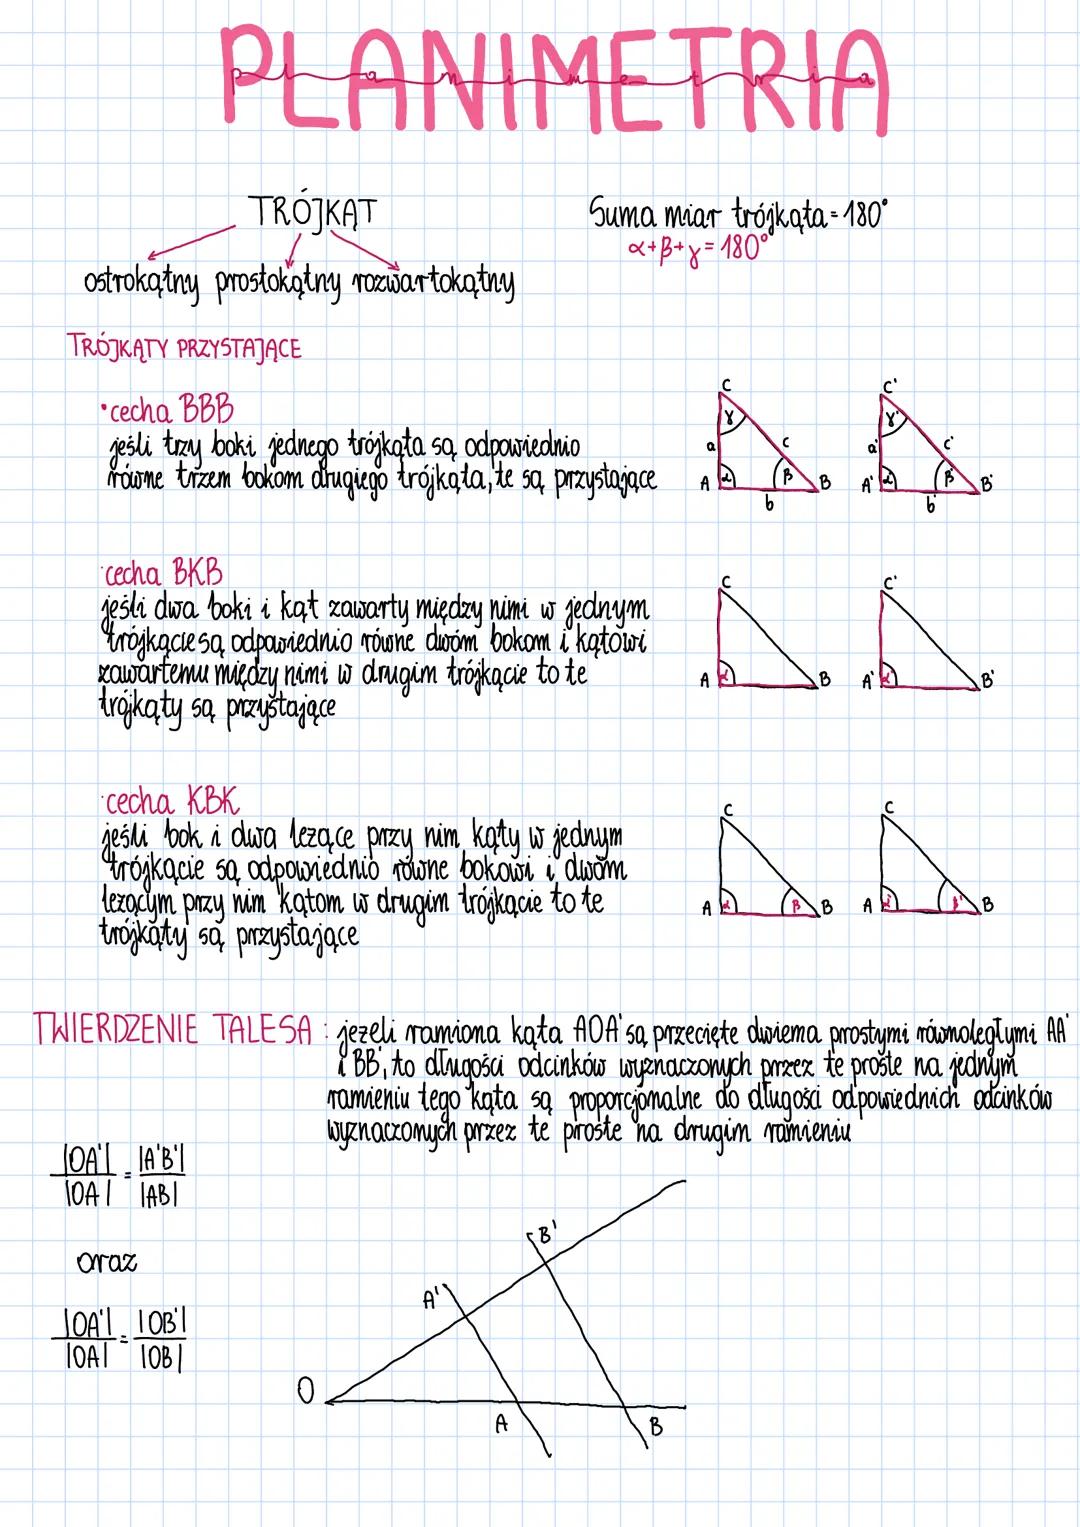 PLANIMETRIA
planimetria
TRÓJKĄT
ostrokątny prostokątny rozwartokątny
Suma miar trójkąta = 180°
α+β+γ = 180°
TRÓJKĄTY PRZYSTAJĄCE
•cecha BBB
jeśli trzy boki jednego trójkąta są odpowiednio
równe trzem bokom drugiego trójkąta, te są przystające
C
γ
a
c
A
α
β
B
b
C'
γ'
a'
c'
A'
α'
β'
B'
b'
·cecha BKB
jeśli dwa boki i kąt zawarty między nimi w jednym
trójkącie są odpowiednio równe dwóm bokom i kątowi
zawartemu między nimi w drugim trójkącie to te
trójkąty są przystające
C
A
α
B
C'
A'
α'
B'
·cecha KBK
jeśli bok i dwa leżące przy nim kąty w jednym
trójkącie są odpowiednio równe bokowi i dwóm
leżącym przy nim kątom w drugim trójkącie to te
trójkąty są przystające
C
A
α
β
B
C
A
α'
β'
B
TWIERDZENIE TALESA : jeżeli ramiona kąta AOA' są przecięte dwiema prostymi równoległymi AA'
i BB', to długości odcinków wyznaczonych przez te proste na jednym
ramieniu tego kąta są proporcjonalne do długości odpowiednich odcinków
wyznaczonych przez te proste na drugim ramieniu
|OA'| = |A'B'|
|OA| |AB|
oraz
|OA'| = |OB'|
|OA| |OB|
B'
A'
O
A
B